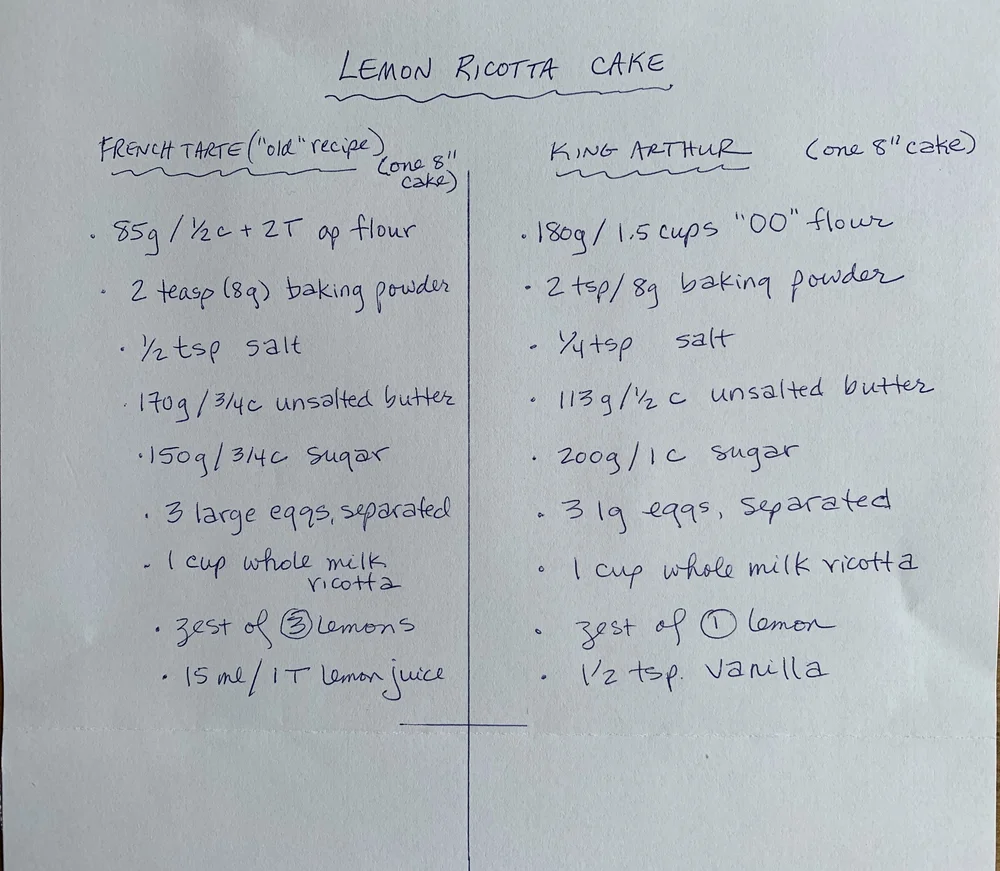 LEMON RICOTTA CAKE
FRENCH TARTE ("old" recipe)
(one 8"
cake)
· 85g / ½c + 2T ap flour
· 2 teasp (8g) baking powder
· ½ tsp salt
· 170g / 3/4c unsalted butter
· 150g / 3/4c sugar
· 3 large eggs, separated
· 1 cup whole milk
ricotta
· zest of ③ lemons
· 15 ml / 1T lemon juice
KING ARTHUR (one 8" cake)
· 180g / 1.5 cups "00" flour
· 2 tsp / 8g baking powder
· ¼ tsp salt
· 113g / ½ c unsalted butter
· 200g / 1c sugar
· 3 lg eggs, separated
· 1 cup whole milk ricotta
· zest of ① lemon
· 1/2 tsp. vanilla